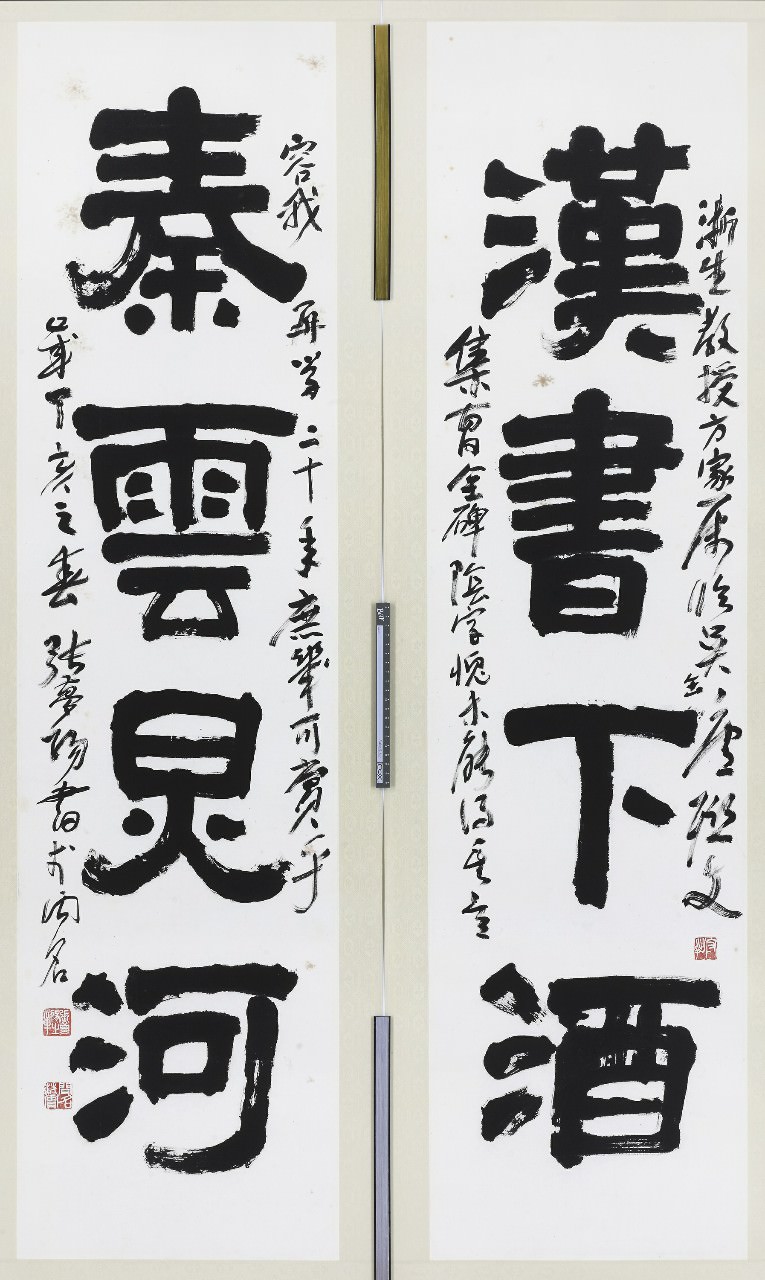 漸生教授方家屬臨吳缶廬聯文
漢書下酒
集曹全碑陰字愧未能得其意
容我再學二十年庶幾可賞乎
秦雲炅河
歲丁亥之春 張夢陽書於問名